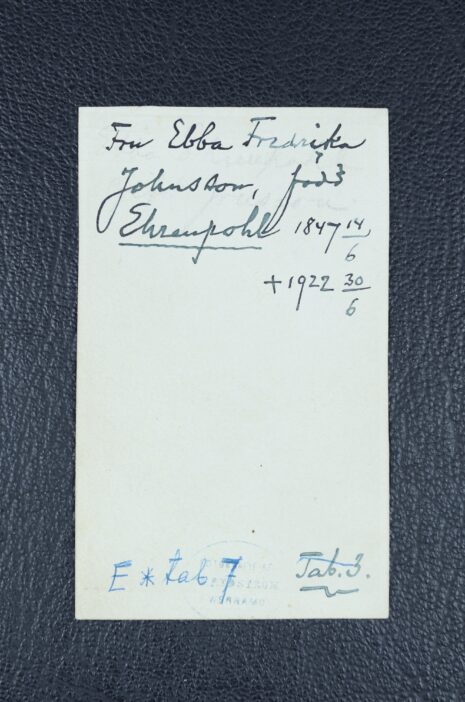 Fru Ebba Fredrika
Johnsson, född
Ehrenpohl 1847 14/6
+ 1922 30/6
E * tab 7
Tab. 3.